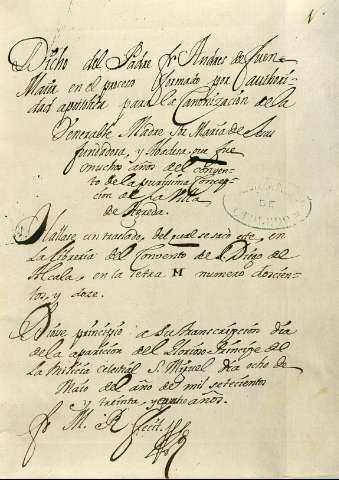 Dicho del Padre fr Andres de fuen
Maia en el proceso formado por authori
dad apostolica para la Canonización de la
Venerable Madre Sor María de Jesus
fundadora, y Abadesa que fue
muchos años del conven
to de la purissima Concep
ción de la Villa
de Agreda.
DE
Hallase un traslado, del qual se sacó este, en
la Libreria del Convento de S. Diego de
Alcala, en la letra H numero doscien
tos, y doze.
Diose principio a su transcripción dia
de la aparición del Glorioso Principe de
la Milicia celestial S. Miguel dia ocho de
Maio del año de mil setecientos
y treinta, y años.
fr M. R. fecit.